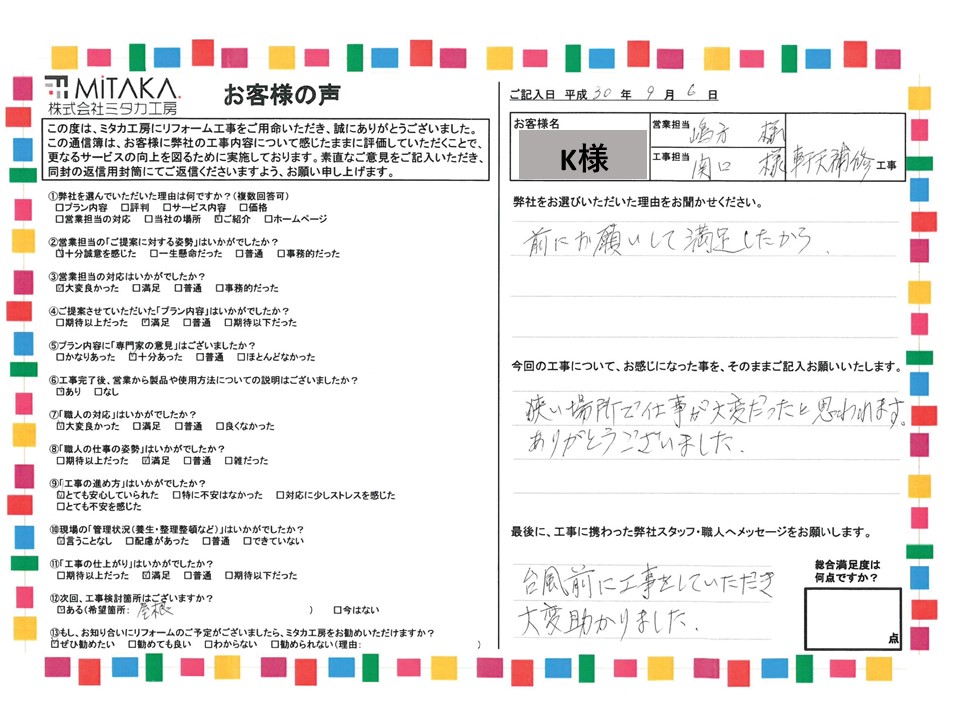 MiTAKA.
株式会社ミタカ工房
お客様の声
この度は、ミタカ工房にリフォーム工事をご用命いただき、誠にありがとうございました。
この通信簿は、お客様に弊社の工事内容について感じたままに評価していただくことで、
更なるサービスの向上を図るために実施しております。素直なご意見をご記入いただき、
同封の返信用封筒にてご返信くださいますよう、お願い申し上げます。
①弊社を選んでいただいた理由は何ですか?(複数回答可)
□プラン内容 □評判 □サービス内容 □価格
□営業担当の対応 □当社の場所 ☑ご紹介 □ホームページ
②営業担当の「ご提案に対する姿勢」はいかがでしたか?
☑十分誠意を感じた □一生懸命だった □普通 □事務的だった
③営業担当の対応はいかがでしたか?
☑大変良かった □満足 □普通 □事務的だった
④ご提案させていただいた「プラン内容」はいかがでしたか?
□期待以上だった ☑満足 □普通 □期待以下だった
⑤プラン内容に「専門家の意見」はございましたか?
□かなりあった ☑十分あった □普通 □ほとんどなかった
⑥工事完了後、営業から製品や使用方法についての説明はございましたか?
☑あり □なし
⑦「職人の対応」はいかがでしたか?
☑大変良かった □満足 □普通 □良くなかった
⑧「職人の仕事の姿勢」はいかがでしたか?
□期待以上だった ☑満足 □普通 □雑だった
⑨「工事の進め方」はいかがでしたか?
☑とても安心していられた □特に不安はなかった □対応に少しストレスを感じた
□とても不安を感じた
⑩現場の「管理状況(養生・整理整頓など)」はいかがでしたか?
☑言うことなし □配慮があった □普通 □できていない
⑪「工事の仕上がり」はいかがでしたか?
□期待以上だった ☑満足 □普通 □期待以下だった
⑫次回、工事検討箇所はございますか?
☑ある(希望箇所: 屋根 ) □今はない
⑬もし、お知り合いにリフォームのご予定がございましたら、ミタカ工房をお勧めいただけますか?
☑ぜひ勧めたい □勧めても良い □わからない □勧められない(理由: )
ご記入日 平成 30 年 9 月 6 日
お客様名 K様
営業担当 嶋方 様
工事担当 関口 様
軒天補修 工事
弊社をお選びいただいた理由をお聞かせください。
前にお願いして満足したから.
今回の工事について、お感じになった事を、そのままご記入お願いいたします。
狭い場所で仕事が大変だったと思われます。
ありがとうございました.
最後に、工事に携わった弊社スタッフ・職人へメッセージをお願いします。
台風前に工事をしていただき
大変助かりました.
総合満足度は
何点ですか?
点